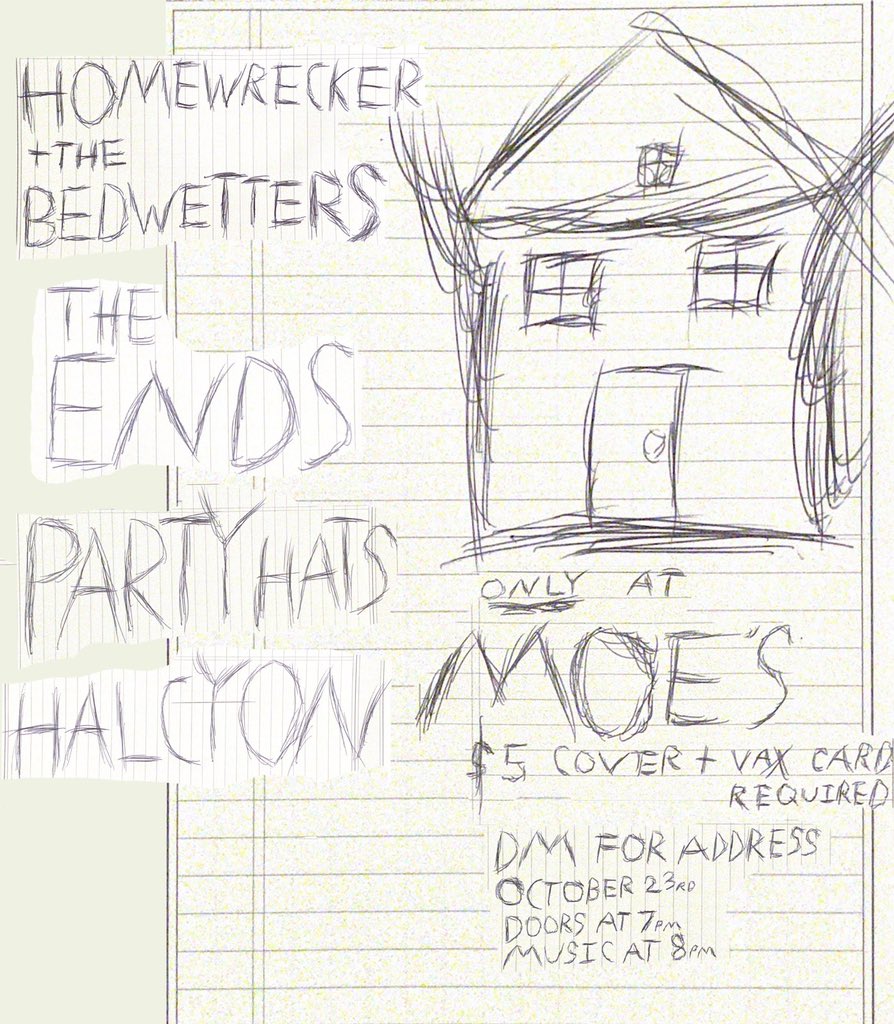 HOMEWRECKER
+ THE
BEDWETTERS
THE
ENDS
PARTY HATS
HALCYON
ONLY AT
MOE'S
$5 COVER + VAX CARD
REQUIRED
DM FOR ADDRESS
OCTOBER 23RD
DOORS AT 7PM
MUSIC AT 8PM